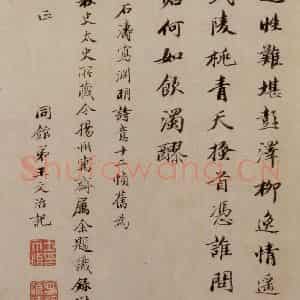 性難堪彭澤柳逸情遥
武陵桃青天搔首憑誰問
何如飲濁醪
石濤寫淵明詩意十二幀舊為
史太史所藏今揚州屬余題識錄
正
同館弟王文治記
Shufawang.CN